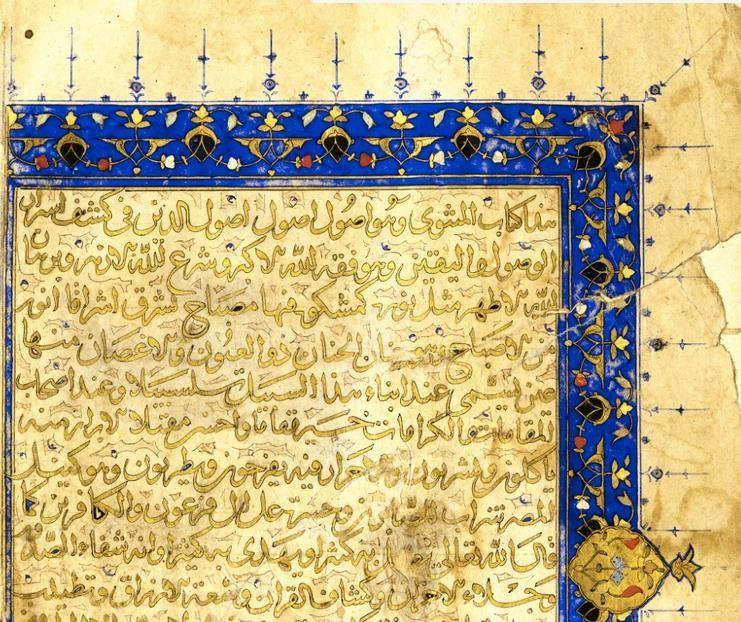 هذا كتاب المثنوى وهو اصول اصول اصول الدين فى كشف اسرار
الوصول واليقين وهو فقه الله الاكبر وشرع الله الازهر وبرهان
الله الاظهر مثل نوره كمشكوة فيها مصباح يشرق اشراقا انور
من الاصباح وهو جنان الجنان ذو العيون والاغصان منها
عين تسمى عند ابناء هذا السبيل سلسبيلا وعند اصحاب
المقامات والكرامات خير مقاما واحسن مقيلا الابرار فيه
ياكلون ويشربون والاحرار فيه يفرحون ويطربون وهو كنيل
مصر شراب للصابرين وحسرة على ال فرعون والكافرين كما
قال الله تعالى يضل به كثيرا ويهدى به كثيرا وانه شفاء الصدور
وجلاء الاحزان وكشاف القران وسعة الارزاق وتطييب